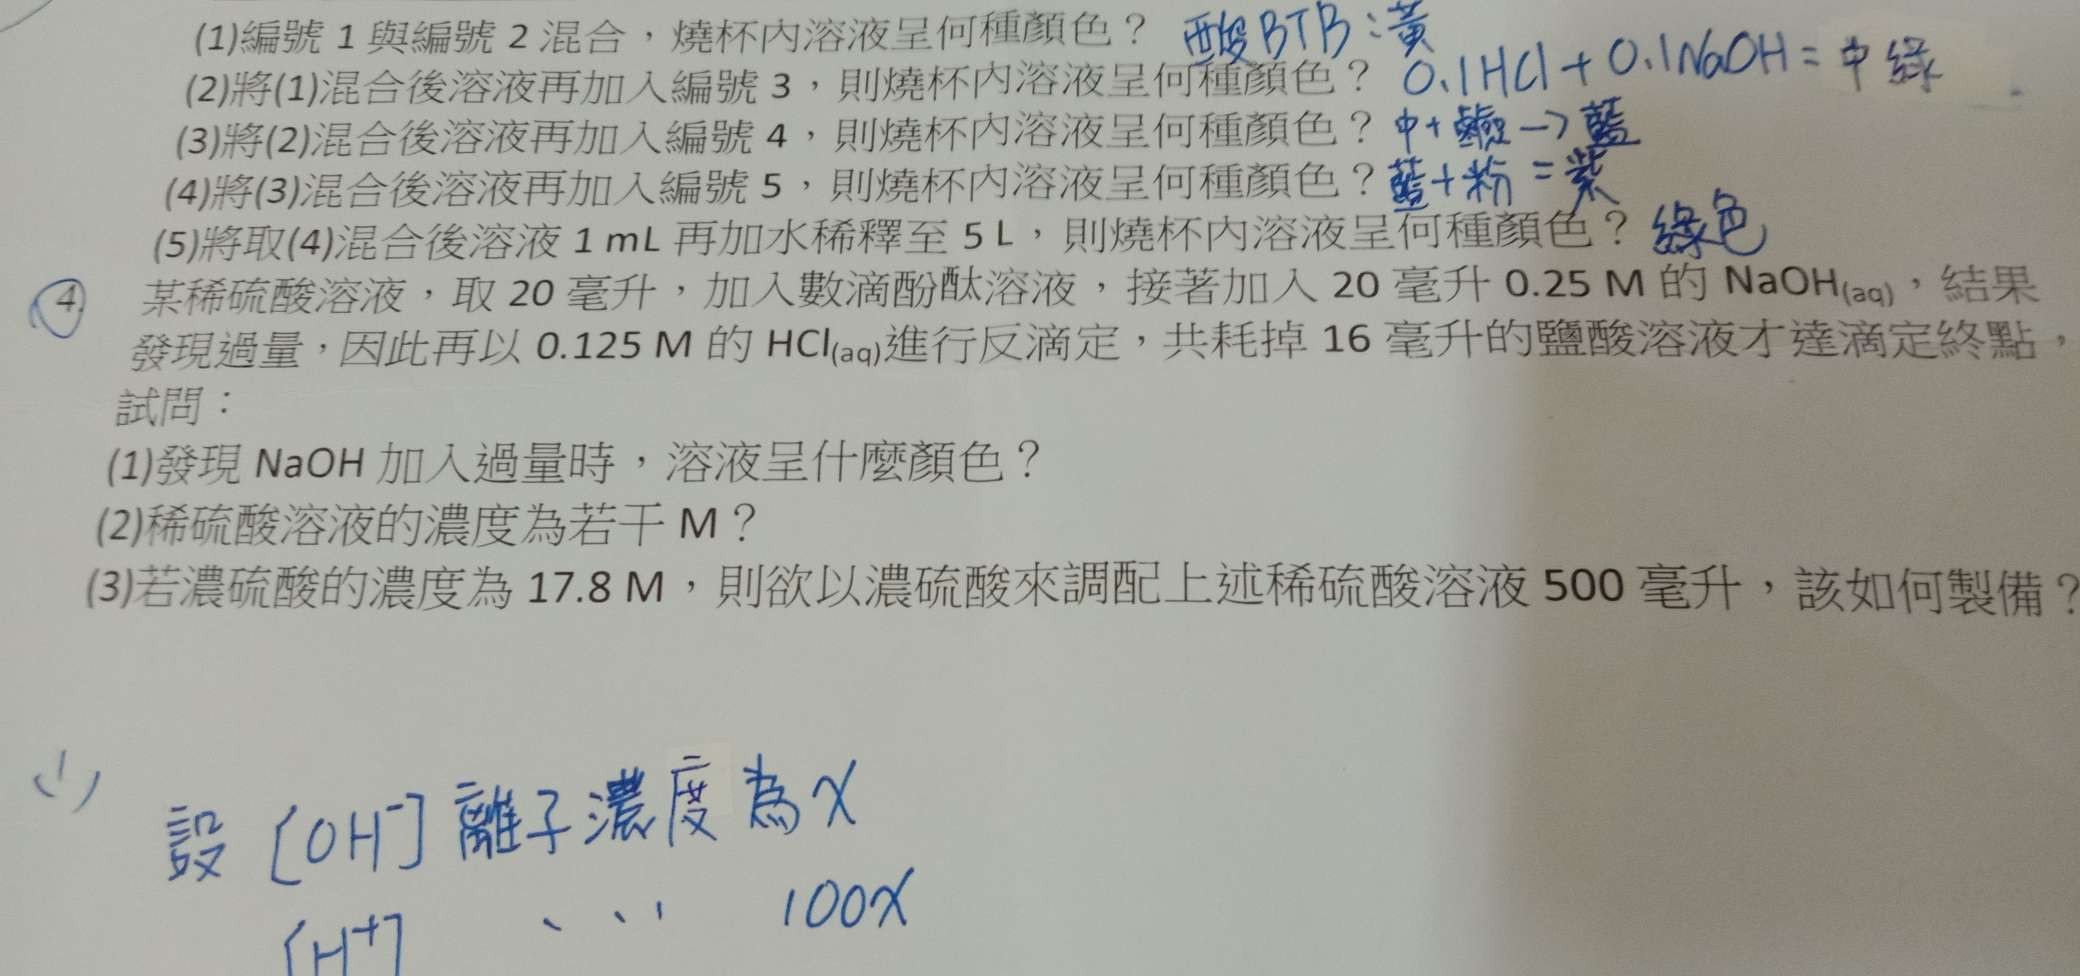 (1)編號 1 與編號 2 混合，燒杯內溶液呈何種顏色？ 酸BTB：黃
(2)將(1)混合後溶液再加入編號 3，則燒杯內溶液呈何種顏色？ 0.1HCl + 0.1NaOH = 中 綠
(3)將(2)混合後溶液再加入編號 4，則燒杯內溶液呈何種顏色？ 中+鹼→藍
(4)將(3)混合後溶液再加入編號 5，則燒杯內溶液呈何種顏色？ 藍+粉=紫
(5)將取(4)混合後溶液 1 mL 再加水稀釋至 5 L，則燒杯內溶液呈何種顏色？ 綠色
4. 某稀硫酸溶液，取 20 毫升，加入數滴酚酞溶液，接著加入 20 毫升 0.25 M 的 NaOH(aq)，結果
發現過量，因此再以 0.125 M 的 HCl(aq)進行反滴定，共耗掉 16 毫升的鹽酸溶液才達滴定終點，
試問：
(1)發現 NaOH 加入過量時，溶液呈什麼顏色？
(2)稀硫酸溶液的濃度為若干 M？
(3)若濃硫酸的濃度為 17.8 M，則欲以濃硫酸來調配上述稀硫酸溶液 500 毫升，該如何製備？
(1)
設 [OH⁻] 離子濃度為 x
[H⁺] 、、、 100x